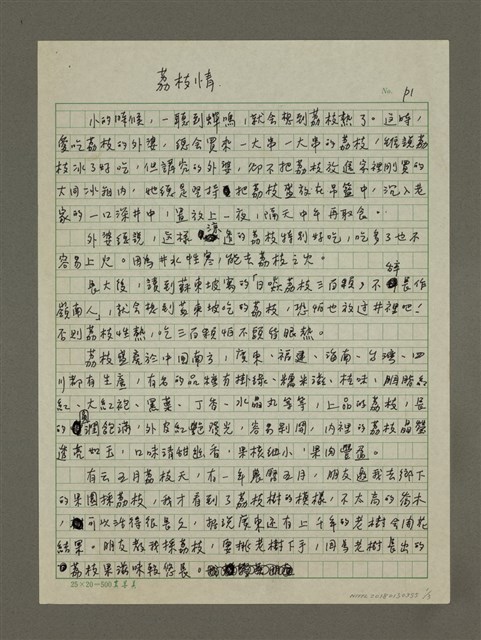 荔枝情
No. P1
小的時候，一聽到蟬鳴，就会想到荔枝熟了。這時，
愛吃荔枝的外婆，總会買來一大串一大串的荔枝，雖說荔
枝冰了好吃，但講究的外婆，卻不把荔枝放進家裡剛買的
大同冰箱內，她總是堅持把荔枝盛放在吊籃中，沉入老
家的一口深井中，置放上一夜，隔天中午再取食。
外婆總說，這樣讓過的荔枝特別好吃，吃多了也不
容易上火。因為井水性寒，能去荔枝之火。
長大後，讀到蘇東坡寫的「日啖荔枝三百顆，不辭長作
嶺南人」，就会想到蘇東坡吃的荔枝，恐怕也放过井裡吧！
否則荔枝性熱，吃三百顆怕不頭昏眼熱。
荔枝盛產於中国南方，廣東、福建、海南、台灣、四
川都有生產，有名的品種有掛綠、糯米滋、桂味、胭脂
紅、大紅袍、黑葉、丁香、水晶丸等等，上品的荔枝，長
的圓潤飽滿，外皮紅艷發光，容易剝開，內裡的荔枝晶瑩
透亮如玉，口味清甜幽香，果核細小，果肉豐盈。
有云五月荔枝天，有一年農曆五月，朋友邀我去鄉下
的果園採荔枝，我才看到了荔枝樹的模樣，不太高的喬木
，可以活得很長久，据說廣東还有上千年的老樹会開花
結果。朋友教我採荔枝，要挑老樹下手，因為老樹長出的
荔枝果滋味較悠長。
25×20=500